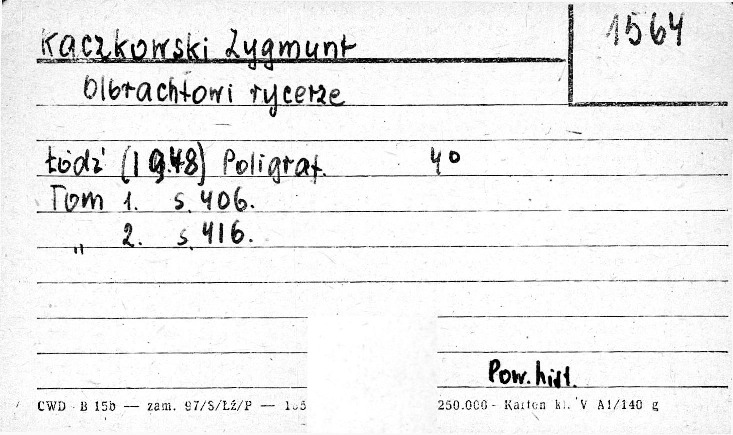 1564
Kaczkowski Zygmunt
Olbrachtowi rycerze
Łódź (1948) Poligraf. 4°
Tom 1. s. 406.
„ 2. s. 416.
Pow. hist.
CWD - B 15b — zam. 97/S/Łź/P — 250.000 - Karton kl. V A1/140 g